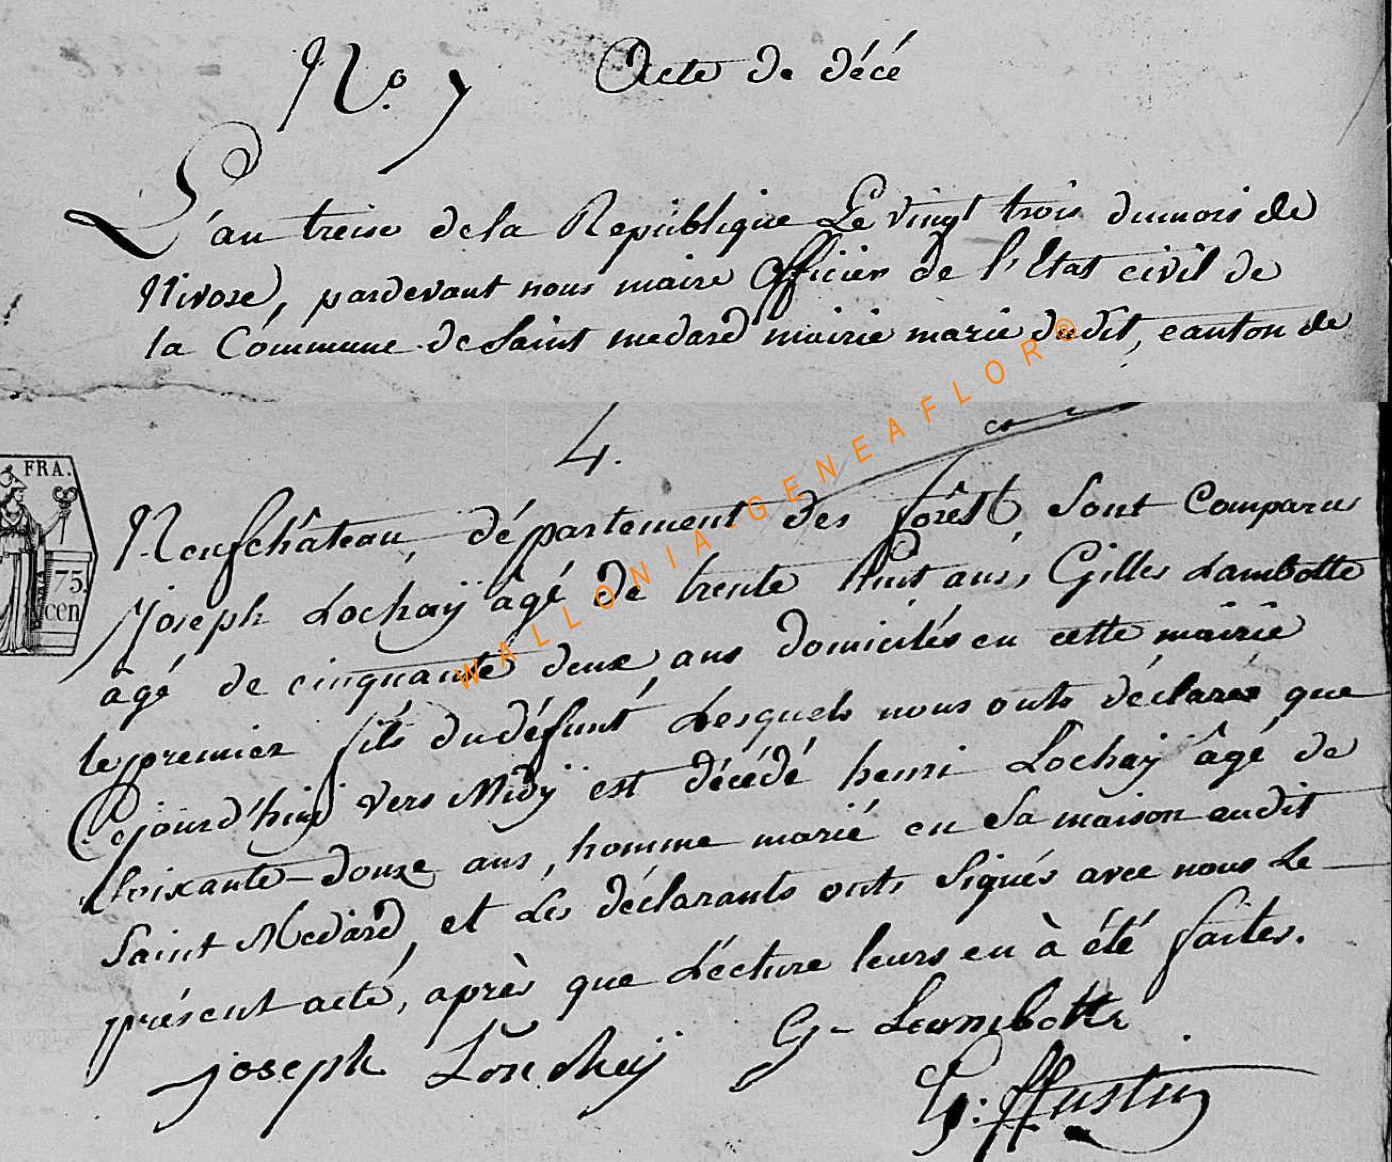 N.º 7 Acte de décé
L'an treise de la République Le vingt trois du mois de
Nivose, pardevant nous maire officier de l'Etat civil de
la Commune de Saint medard mairie marie dudit, canton de
4.
Neufchâteau, département des forêts, sont Comparus
Joseph Lochaÿ âgé de trente huit ans, Gilles Lambotte
âgé de cinquante deux ans domiciliés en cette mairie
le premier fils du défunt, Lesquels nous onts déclarés que
Cejourd'huy vers Midÿ est décédé henri Lochaÿ âgé de
soixante-douze ans, homme marié en sa maison audit
Saint Medard, et Les déclarants onts signés avec nous Le
présent acte, après que Lécture leurs en à été faites.
joseph Lonchay G- Lambotte
G: ffustin
FRA.
75.
cen
WALLONIA-GENEAFLOR©